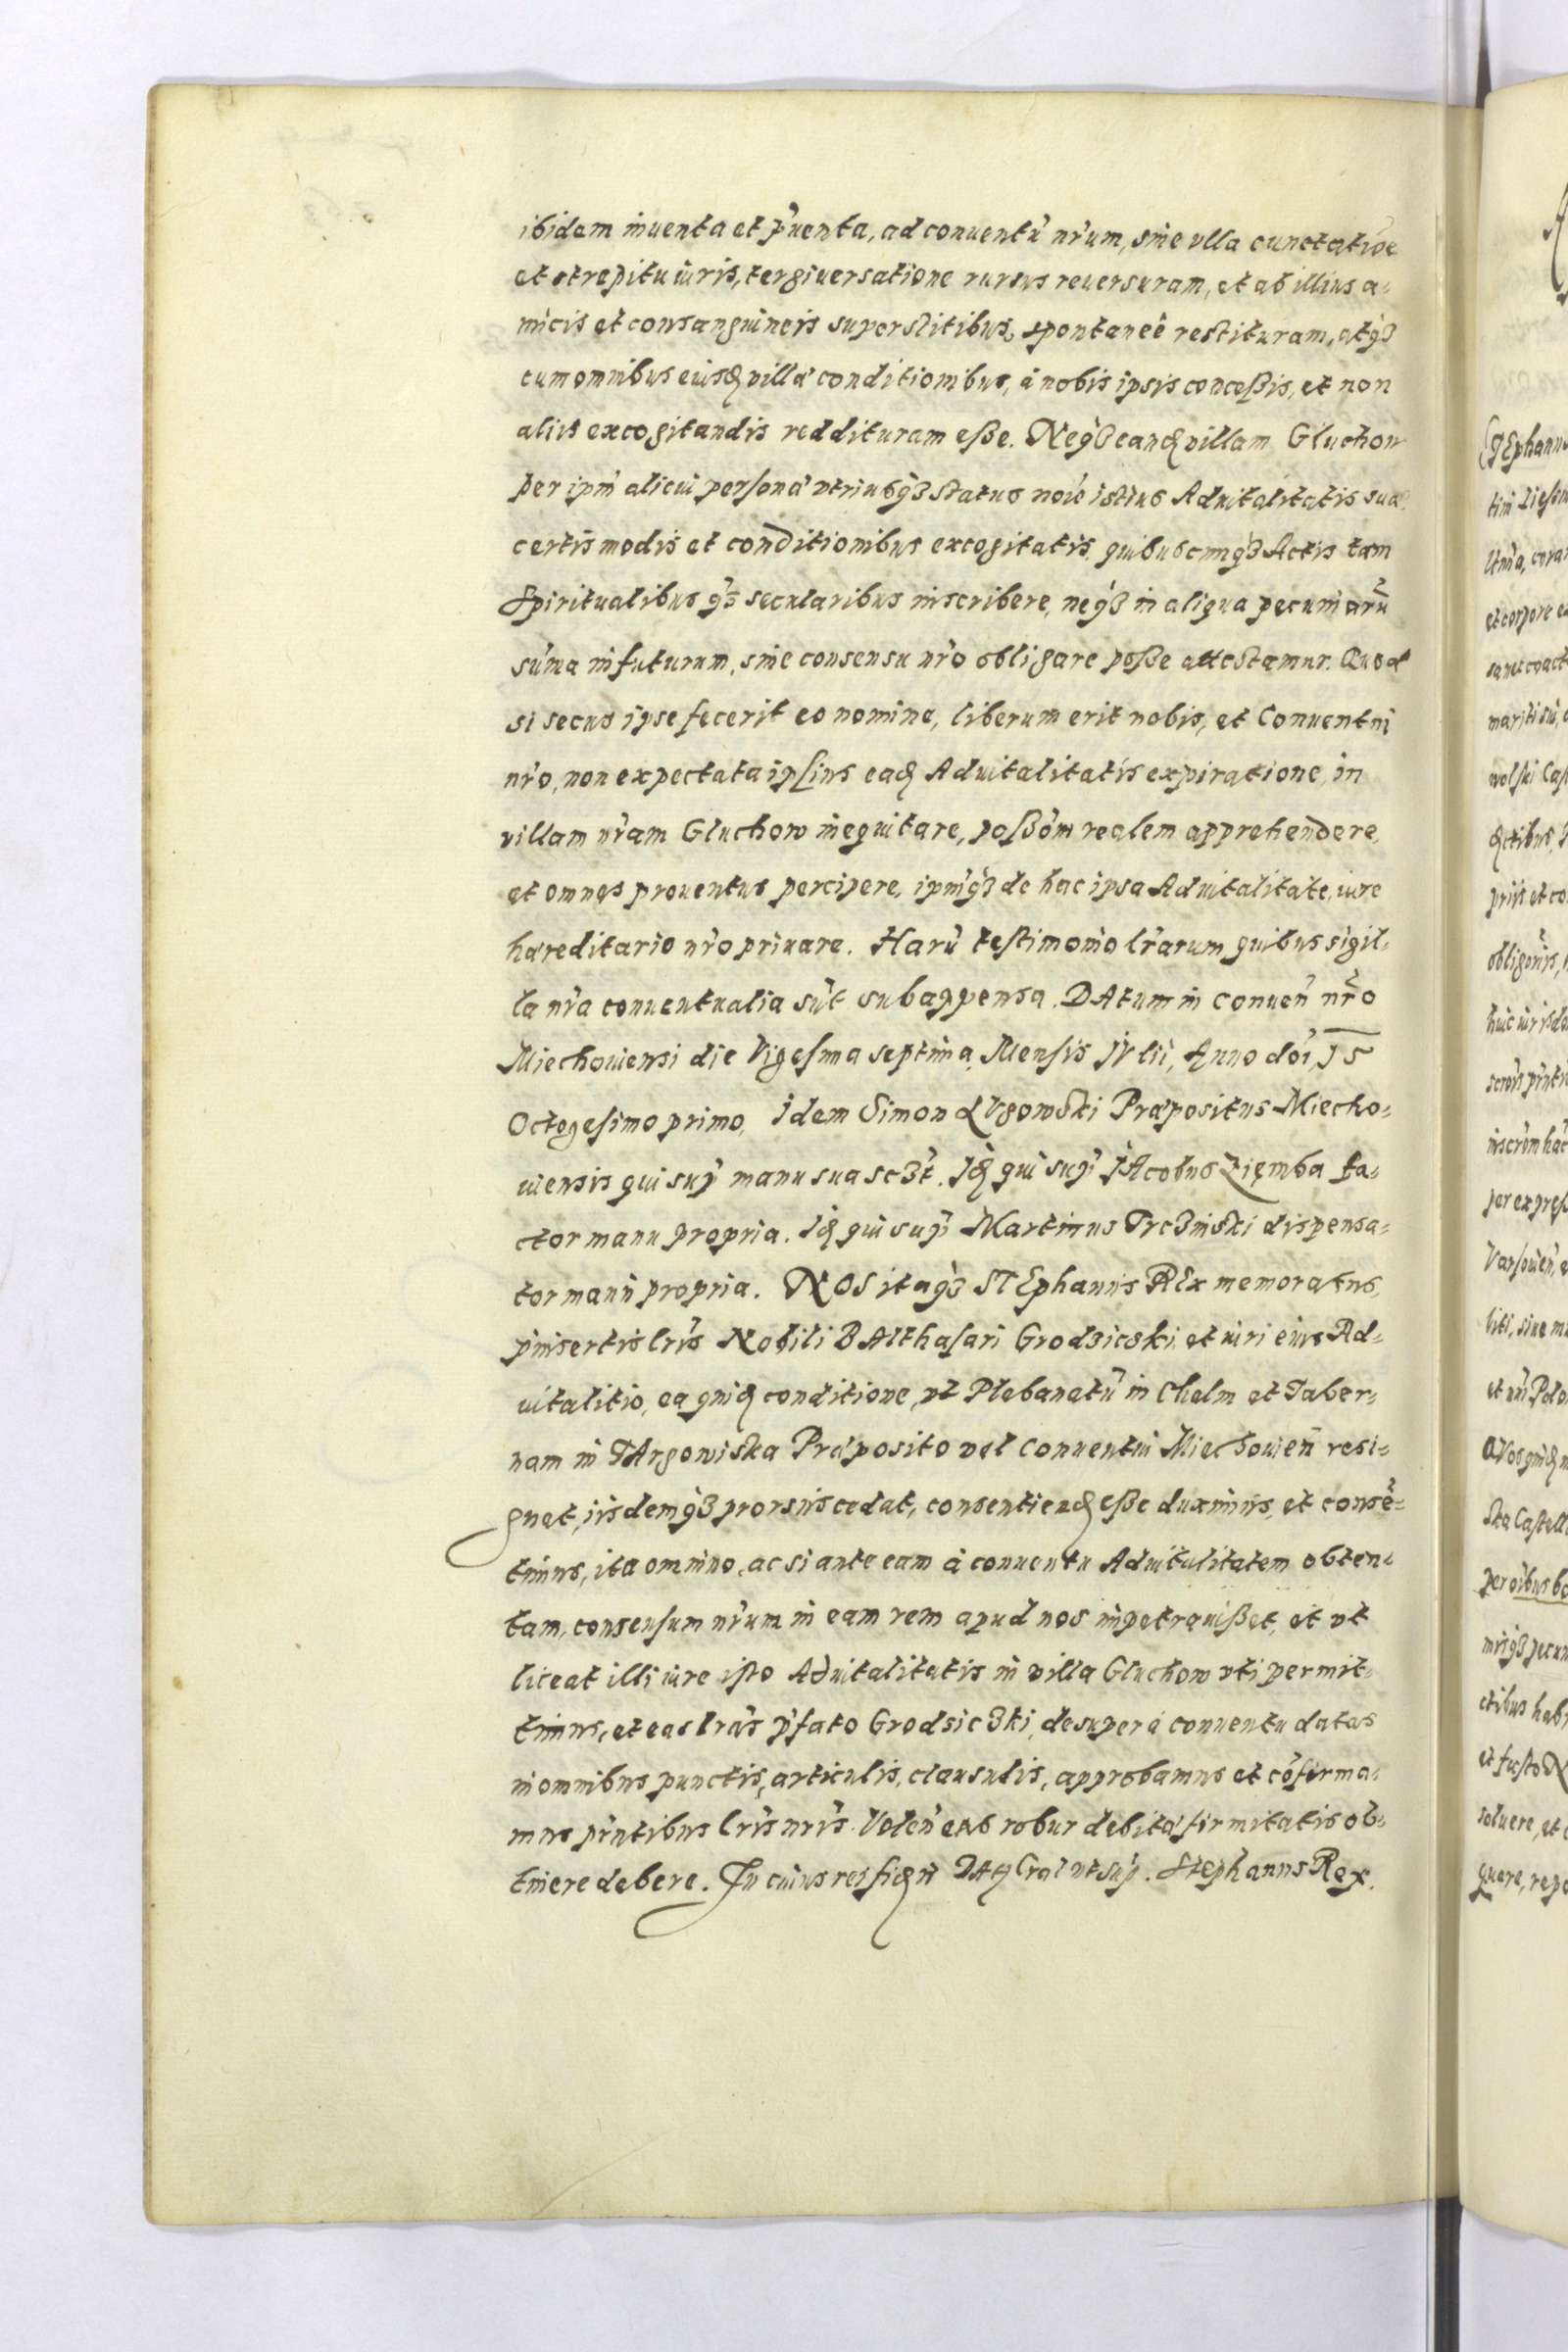 ibidem inuenta et p̃uenta, ad conuentũ nr̃um, sine vlla cunctatiõe
et strepitu iuris, tergiuersatione rursus reuersuram, et ab illius a=
micis et consanguineis superstitibus, spontaneè restituram, atq3
cum omnibus eiusd villæ conditionibus, à nobis ipsis conceßis, et non
aliis excogitandis reddituram eße. Neq3 eand villam Gluchow
per ipm̃ alicui personæ vtriusq3 status noĩe istius Aduitalitatis suæ
certis modis et conditionibus excogitatis, quibuscunq3 Actis tam
Spiritualibus q̃3 secularibus inscribere, neq3 in aliqua pecuniarũ
sum̃a in futurum, sine consensu nr̃o obligare poße attestamur. Quod
si secus ipse fecerit eo nomine, liberum erit nobis, et Conuentui
nr̃o, non expectata ipsius ead Aduitalitatis expiratione, in
villam nr̃am Gluchow inequitare, poßõm realem apprehendere,
et omnes prouentus percipere, ipm̃q3 de hac ipsa Aduitalitate, iure
hæreditario nr̃o priuare. Harũ testimonio lr̃arum quibus sigil=
la nr̃a conuentualia sũt subappensa. DAtum in conuen̄ nr̃o
Miechouiensi die Vigesima septima, Mensis IVlii, Anno doĩ, 15
Octogesimo primo, Idem Simon LVgowski Præpositus Miecho=
uiensis qui sup̃ manu sua sc3t. Id qui sup̃ IAcobus Ziemba fa=
ctor manu propria. Id qui sup̃ Martinus Trc3inski dispensa=
tor manu propria. NOS itaq3 STEphanus REx memoratus,
p̃insertis lr̃is Nobili BAlthasari Grodzicski, et iuri eius Ad=
uitalitio, ea quid conditione, vt Plebanatũ in Chelm et Taber=
nam in TArgowiska Præposito vel Conuentui Miechouien̄ resi=
gnet, iisdemq3 prorsus cedat, consentiend eße duximus, et consẽ=
timus, ita omnino, ac si ante eam à conuentu Aduitalitatem obten=
tam, consensum nr̃um in eam rem apud nos impetrauißet, et vt
liceat illi iure isto Aduitalitatis in villa Gluchow vti permit=
timus, et eas lr̃as p̃fato Grodsic3ki, desuper à conuentu datas
in omnibus punctis, articulis, clausulis, approbamus et cõfirma=
mus p̃ntibus lr̃is nr̃is. Volen̄ eas robur debitæ firmitatis ob=
tinere debere. In cuius rei fid̃ etc DAt Cral ut sup̃. Stephanus Rex.